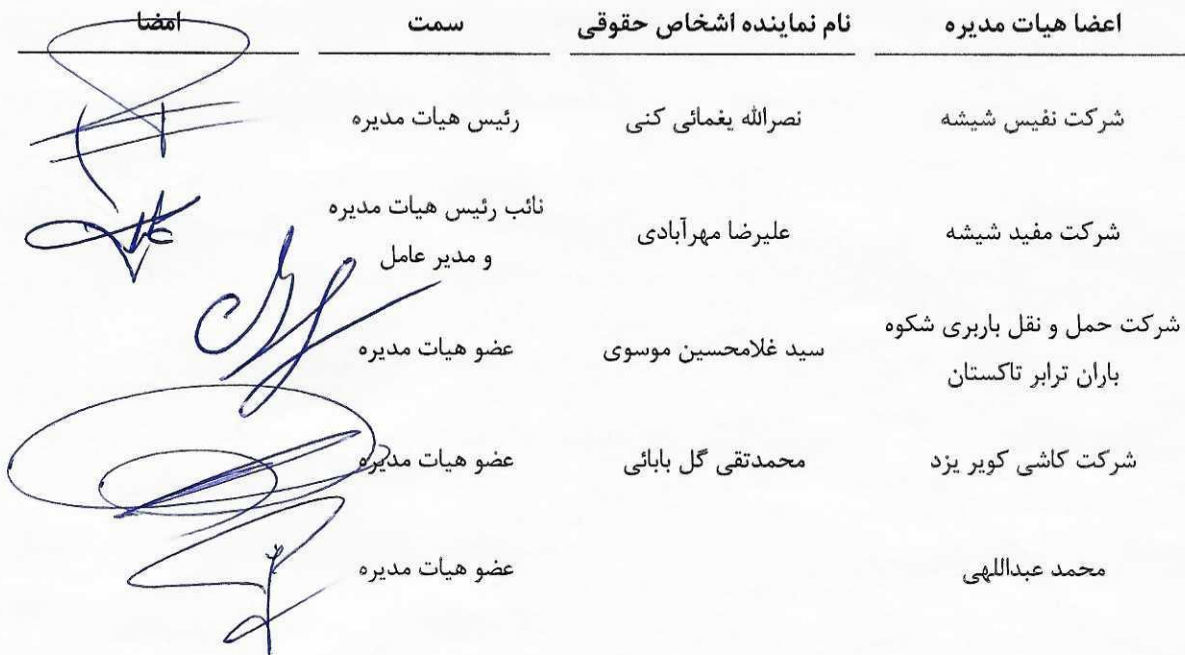 اعضا هیات مدیره نام نماینده اشخاص حقوقی سمت امضا
شرکت نفیس شیشه نصرالله یغمائی کنی رئیس هیات مدیره
شرکت مفید شیشه علیرضا مهرآبادی نائب رئیس هیات مدیره
و مدیر عامل
شرکت حمل و نقل باربری شکوه
باران ترابر تاکستان سید غلامحسین موسوی عضو هیات مدیره
شرکت کاشی کویر یزد محمدتقی گل بابائی عضو هیات مدیره
محمد عبداللهی عضو هیات مدیره